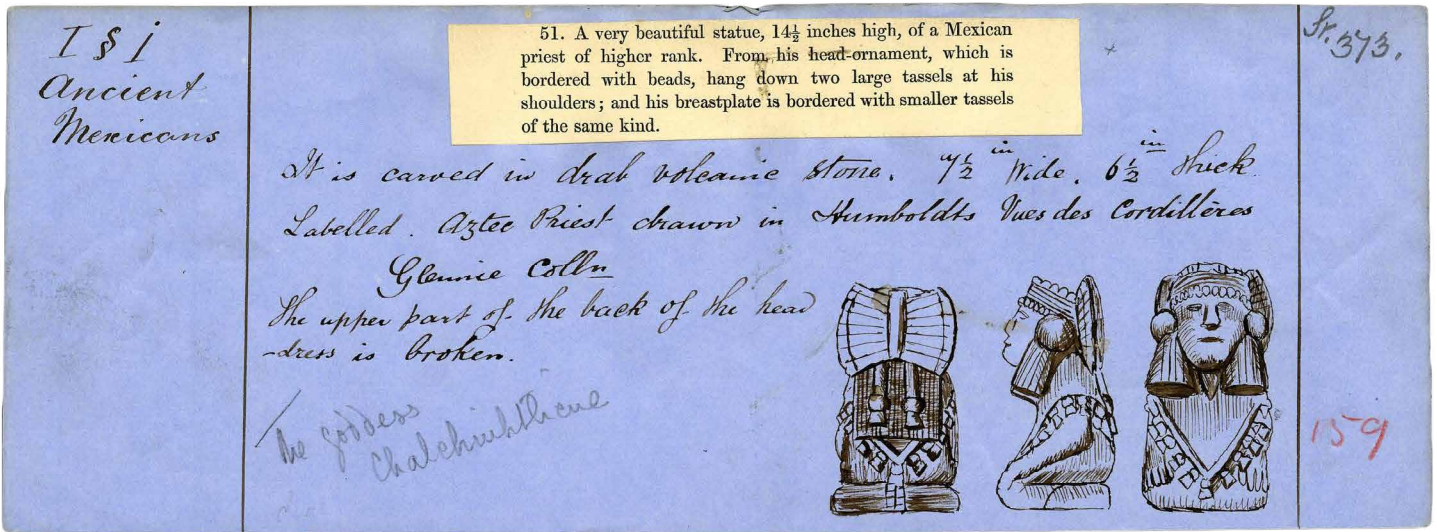 I § i
Ancient
Mexicans
51. A very beautiful statue, 14½ inches high, of a Mexican
priest of higher rank. From his head-ornament, which is
bordered with beads, hang down two large tassels at his
shoulders; and his breastplate is bordered with smaller tassels
of the same kind.
St. 373.
It is carved in drab volcanic stone. 7½ in Wide. 6½ in thick
Labelled. Aztec Priest drawn in Humboldts Vues des Cordillères
Glennie Colln
The upper part of the back of the head
-dress is broken.
The goddess
Chalchiuhtlicue
159